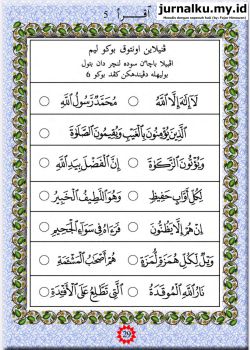 jurnalku.my.id
Menulis dengan sepenuh hati (by: Fajar Himawan)
اقرأ 5
ڤنيلاين اونتوق بوكو ليم
اڤبيلا باچاءن سوده لنچر دان بتول
بوليهله دڤيندهكن كڤد بوكو 6
لَآ إِلَهَ إِلَّا اللَّهُ ○ مُحَمَّدٌ رَسُولُ اللَّهِ ○
الَّذِينَ يُؤْمِنُونَ بِالْغَيْبِ وَيُقِيمُونَ الصَّلَوةَ
وَيُؤْتُونَ الزَّكَوةَ ○ إِنَّ الْفَضْلَ بِيَدِ اللَّهِ ○
لِكُلِّ أَوَّابٍ حَفِيظٍ ○ وَهُوَ اللَّطِيفُ الْخَبِيرُ ○
إِنْ هُمْ إِلَّا يَظُنُّونَ ○ فَرَءَاهُ فِي سَوَآءِ الْجَحِيمِ ○
وَيْلٌ لِكُلِّ هُمَزَةٍ لُمَزَةٍ ○ هُمْ أَصْحَابُ الْمَشْئَمَةِ ○
نَارُ اللَّهِ الْمُوقَدَةُ ○ الَّتِي تَطَّلِعُ عَلَى الْأَفْئِدَةِ ○